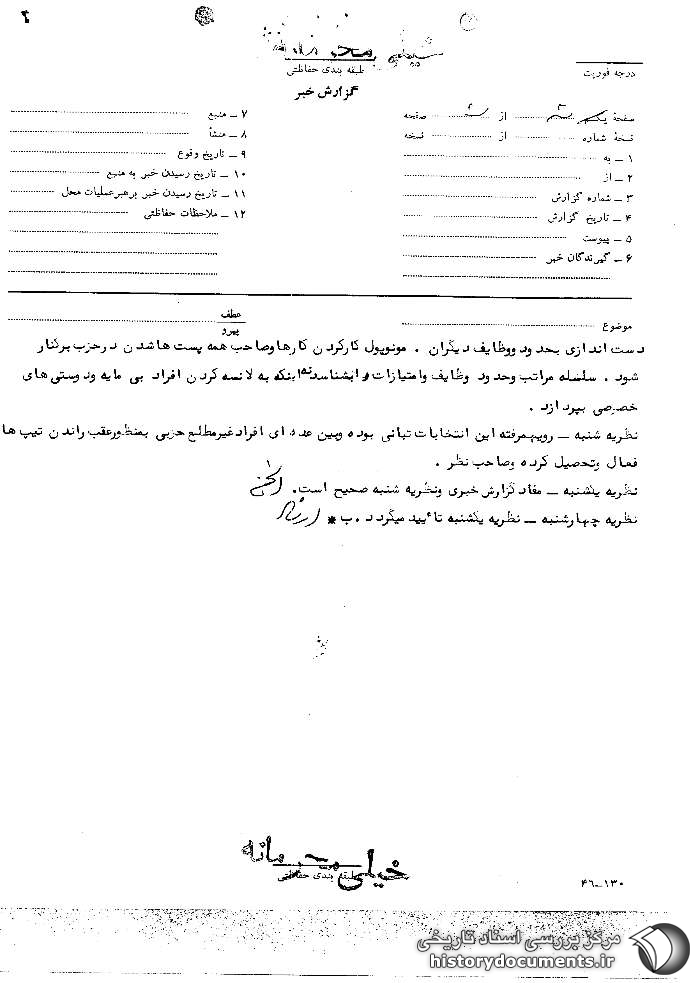 ۲
خیلی محرمانه
طبقه بندی حفاظتی
درجه فوریت
گزارش خبر
صفحه از صفحه
نسخه شماره از نسخه
۱ ـ به
۲ ـ از
۳ ـ شماره گزارش
۴ ـ تاریخ گزارش
۵ ـ پیوست
۶ ـ گیرندگان خبر
۷ ـ منبع
۸ ـ منشأ
۹ ـ تاریخ وقوع
۱۰ ـ تاریخ رسیدن خبر به منبع
۱۱ ـ تاریخ رسیدن خبر برهبرعملیات محل
۱۲ ـ ملاحظات حفاظتی
موضوع
عطف
پیرو
دست اندازی بحدود ووظایف دیگران . مونوپول کارکردن کارها وصاحب همه پست ها شدن درحزب برکنار
شود . سلسله مراتب وحدود وظایف وامتیازات را بشناسد نه اینکه به لانسه کردن افراد بی مایه ودوستی های
خصوصی بپردازد .
نظریه شنبه ـ رویهمرفته این انتخابات تبانی بوده وبین عده ای افرادغیرمطلع حزبی بمنظورعقب راندن تیپ ها
فعال وتحصیل کرده وصاحب نظر .
نظریه یکشنبه ـ مفاد گزارش خبری ونظریه شنبه صحیح است.
نظریه چهارشنبه ـ نظریه یکشنبه تائید میگردد .ب *
خیلی محرمانه
طبقه بندی حفاظتی
۴۶-۱۳۰
مرکز بررسی اسناد تاریخی
historydocuments.ir